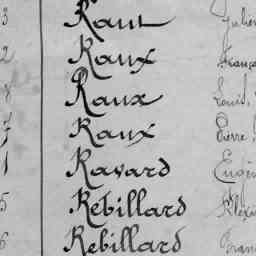 3 Raut Julien
2 Raux França
8 Raux Louis,
7 Raux Pierre,
1 Ravard Eugèn
5 Rebillard Alexi
6 Rebillard Fran